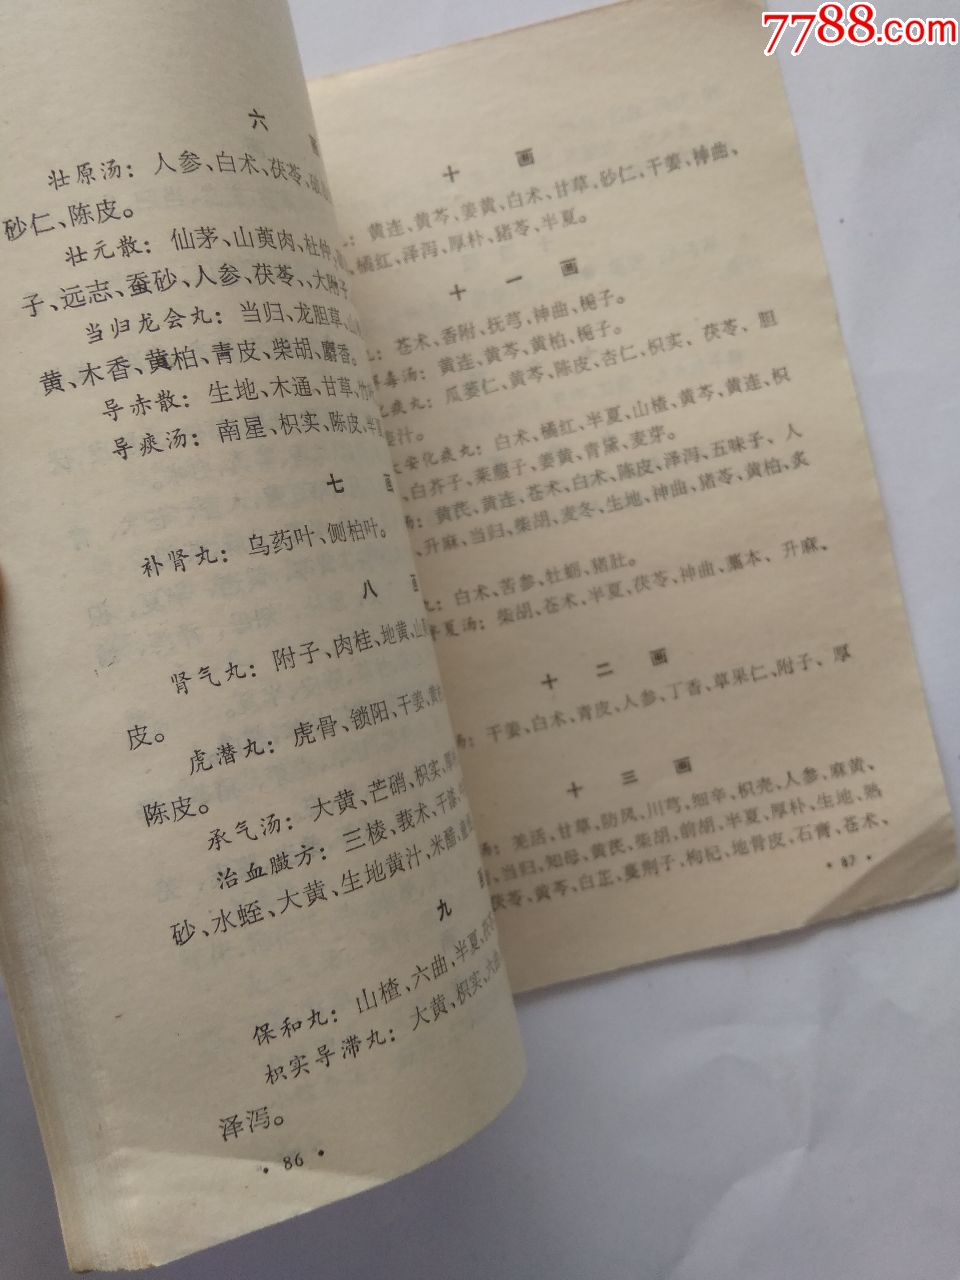 7788.com
六 画
壮原汤：人参、白术、茯苓、
砂仁、陈皮。
壮元散：仙茅、山萸肉、杜仲、
子、远志、蚕砂、人参、茯苓、、大附子
当归龙会丸：当归、龙胆草、
黄、木香、黄柏、青皮、柴胡、麝香。
导赤散：生地、木通、甘草、竹
导痰汤：南星、枳实、陈皮、半夏
七 画
补肾丸：乌药叶、侧柏叶。
八 画
肾气丸：附子、肉桂、地黄、山
皮。
虎潜丸：虎骨、锁阳、干姜、黄
陈皮。
承气汤：大黄、芒硝、枳实、厚
治血臌方：三棱、莪术、干漆、
砂、水蛭、大黄、生地黄汁、米醋、
九
保和丸：山楂、六曲、半夏、茯
枳实导滞丸：大黄、枳实、六曲
泽泻。
• 86 •
十 画
：黄连、黄芩、姜黄、白术、甘草、砂仁、干姜、神曲、
橘红、泽泻、厚朴、猪苓、半夏。
十 一 画
：苍术、香附、抚芎、神曲、栀子。
毒汤：黄连、黄芩、黄柏、栀子。
痰丸：瓜蒌仁、黄芩、陈皮、杏仁、枳实、茯苓、胆
汁。
安化痰丸：白术、橘红、半夏、山楂、黄芩、黄连、枳
、白芥子、莱菔子、姜黄、青黛、麦芽。
汤：黄芪、黄连、苍术、白术、陈皮、泽泻、五味子、人
、升麻、当归、柴胡、麦冬、生地、神曲、猪苓、黄柏、炙
：白术、苦参、牡蛎、猪肚。
夏汤：柴胡、苍术、半夏、茯苓、神曲、藁本、升麻、
十 二 画
汤：干姜、白术、青皮、人参、丁香、草果仁、附子、厚
十 三 画
汤：羌活、甘草、防风、川芎、细辛、枳壳、人参、麻黄、
、当归、知母、黄芪、柴胡、前胡、半夏、厚朴、生地、熟
茯苓、黄芩、白芷、蔓荆子、枸杞、地骨皮、石膏、苍术、
• 87 •